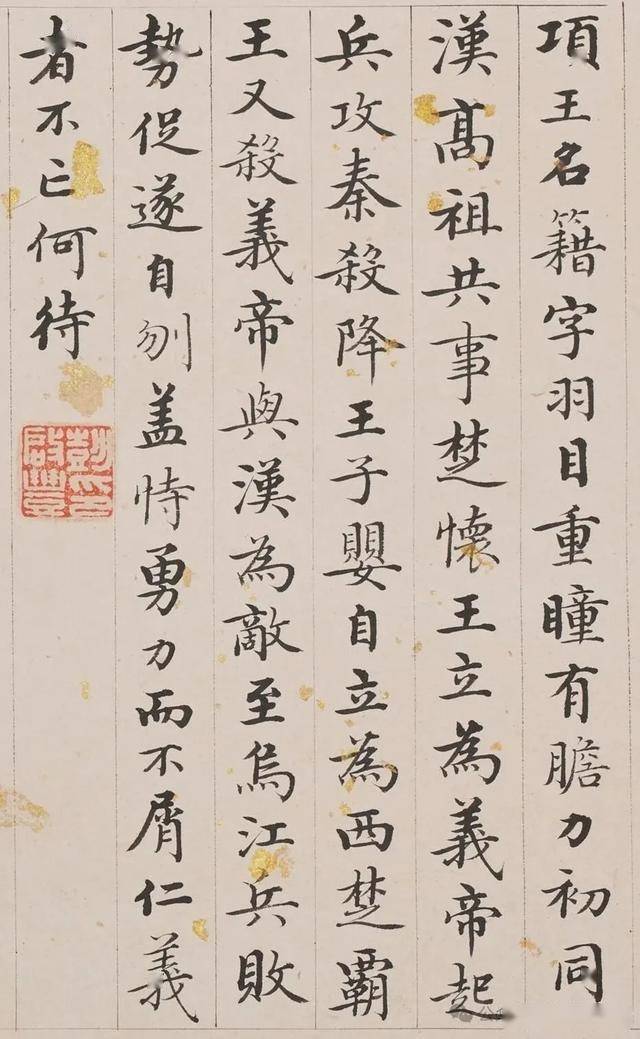 項王名籍字羽目重瞳有膽力初同
漢髙祖共事楚懷王立為義帝起
兵攻秦殺降王子嬰自立為西楚霸
王又殺義帝與漢為敵至烏江兵敗
勢促遂自刎盖恃勇力而不屑仁義
者不亡何待
彭啟豐印